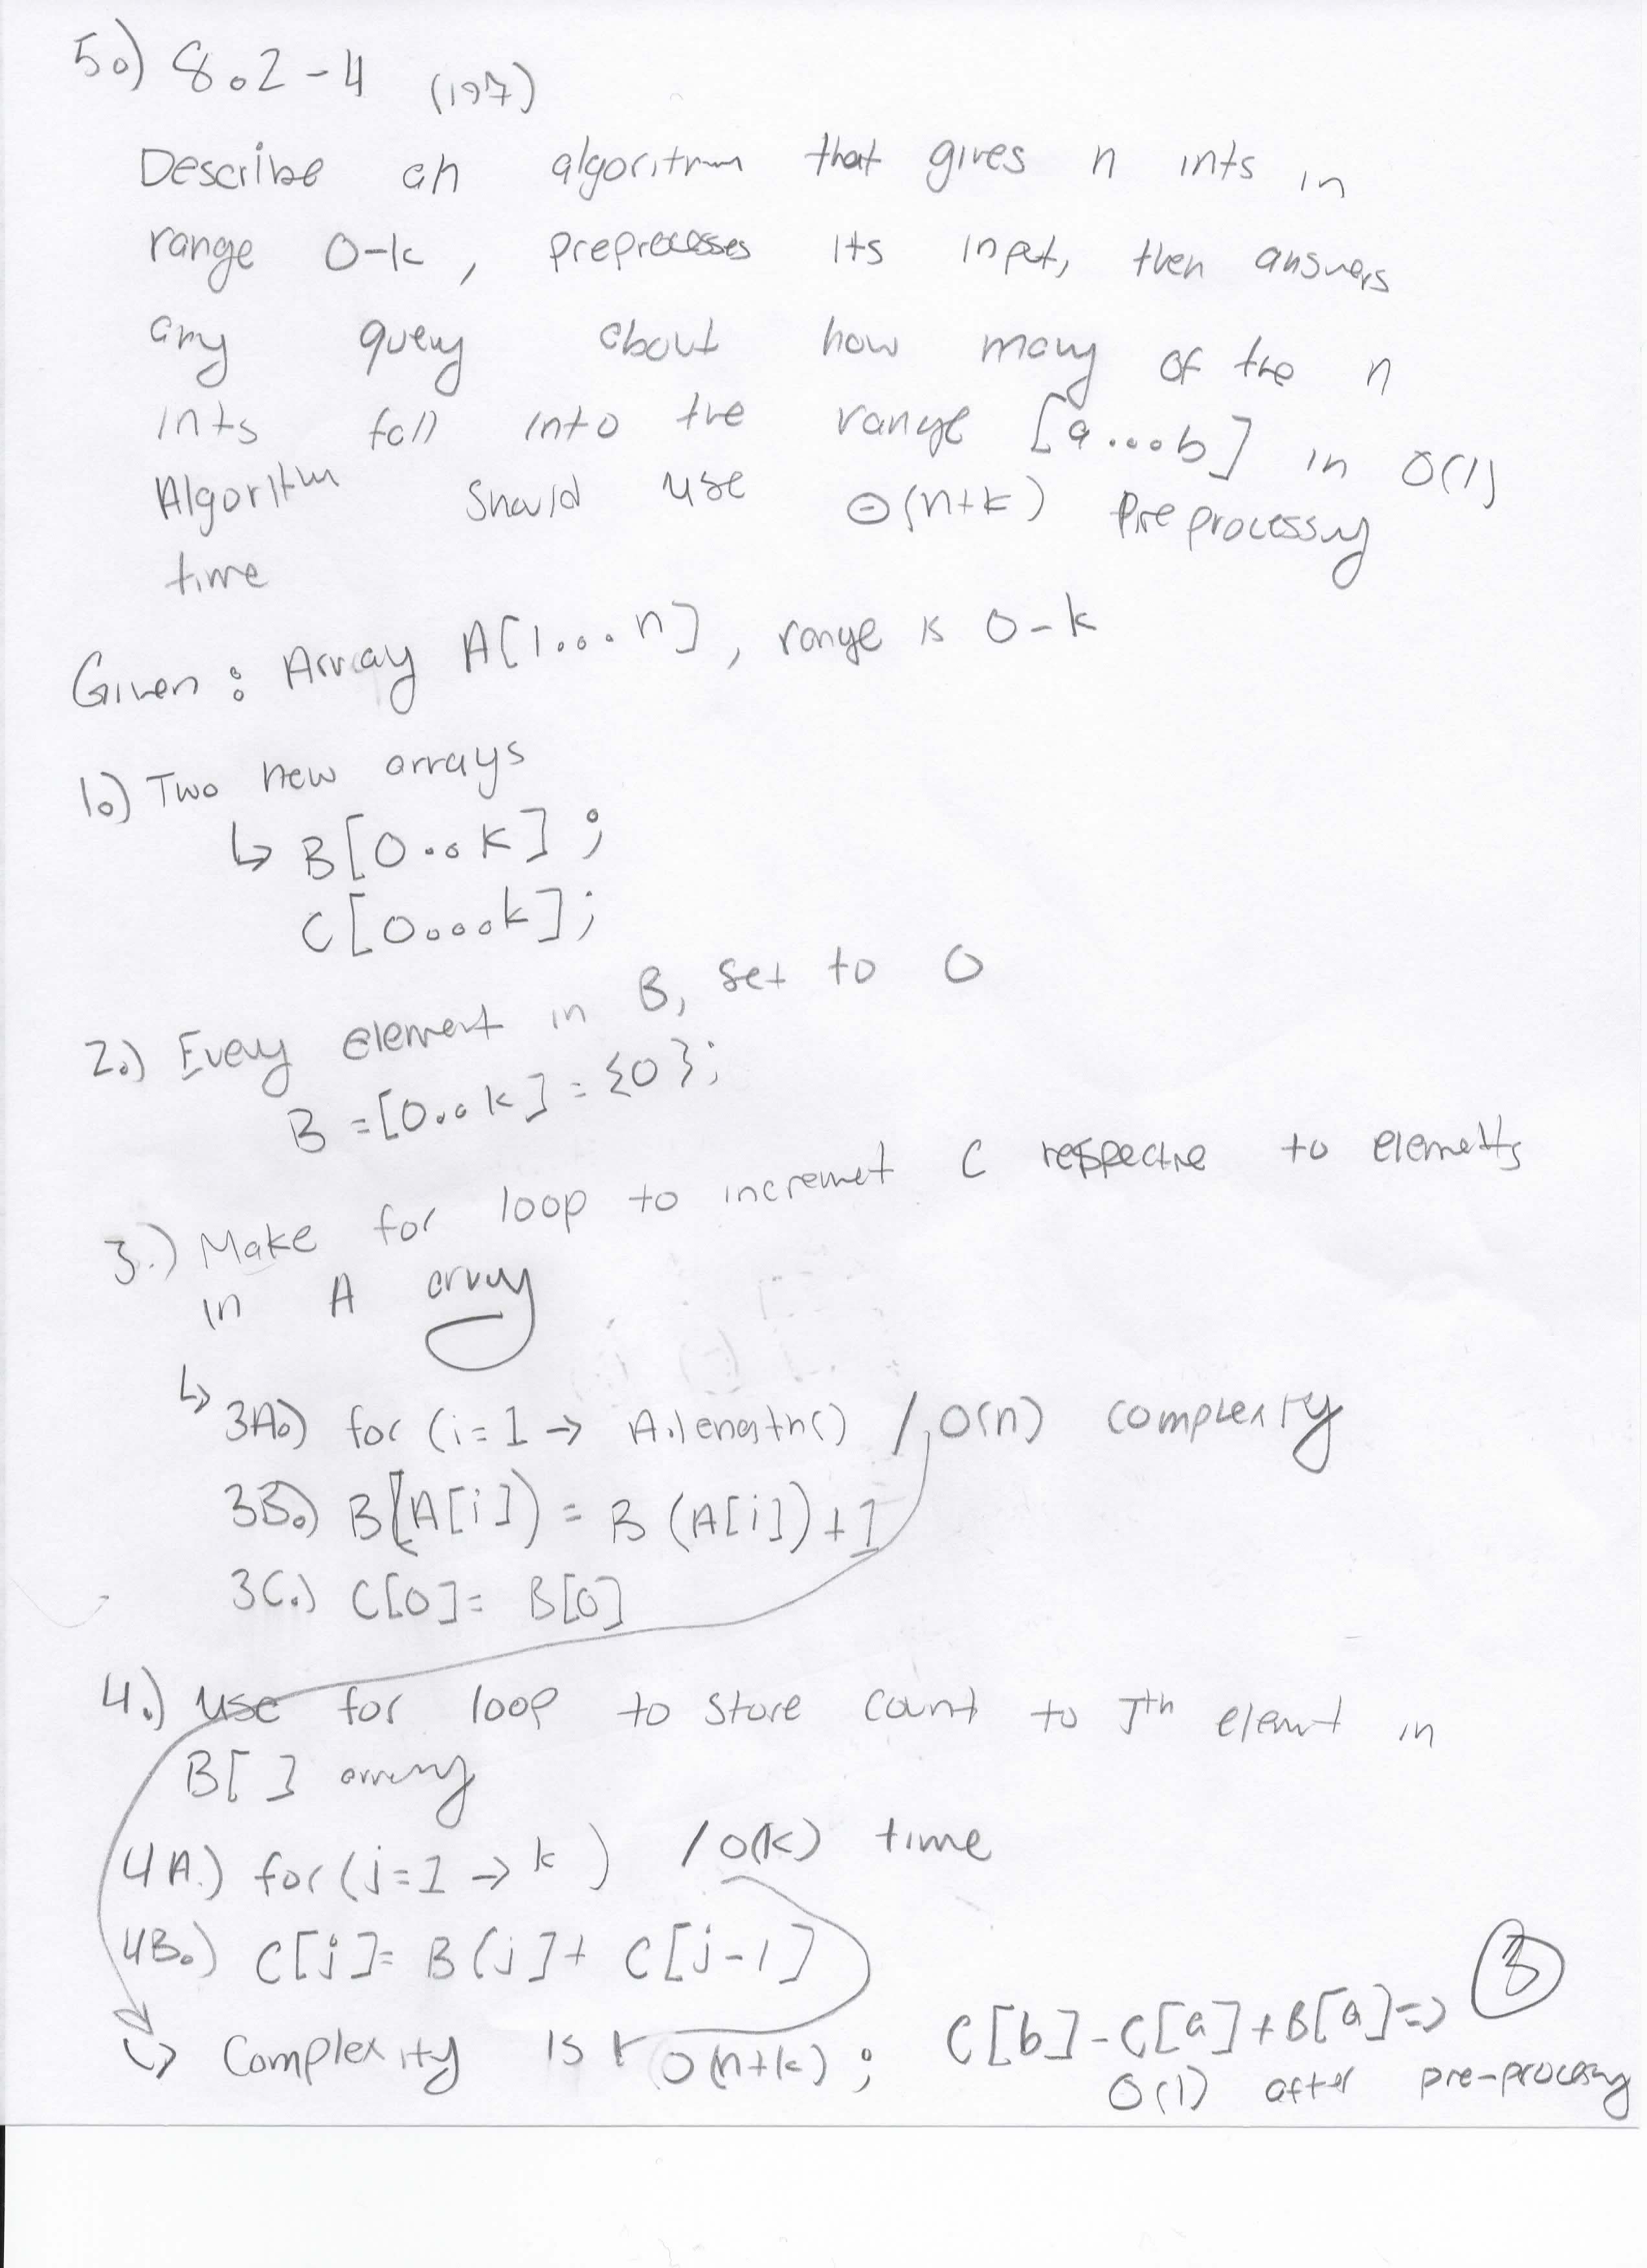 5.) 8.2-4 (197)
Describe an algoritm that gives n ints in
range 0-k, preprocesses its input, then answers
any query about how many of the n
ints fall into the range [a...b] in O(1)
Algoritm should use Θ(n+k) Preprocessing
time
Given: Array A[1...n], range is 0-k
1.) Two new arrays
↳ B[0..k];
C[0...k];
2.) Every element in B, set to 0
B=[0..k]={0};
3.) Make for loop to increment C respective to elements
in A array
↳ 3A.) for (i=1→ A.length() / O(n) complexity
3B.) B[A[i]) = B(A[i])+1
3C.) C[0]= B[0]
4.) use for loop to store count to Jth elemnt in
B[ ] array
4A.) for(j=1→k) / O(k) time
4B.) C[j]= B(j]+ C[j-1]
↳ Complexity is O(n+k); C[b]-C[a]+B[a]=>
O(1) after pre-processing
3